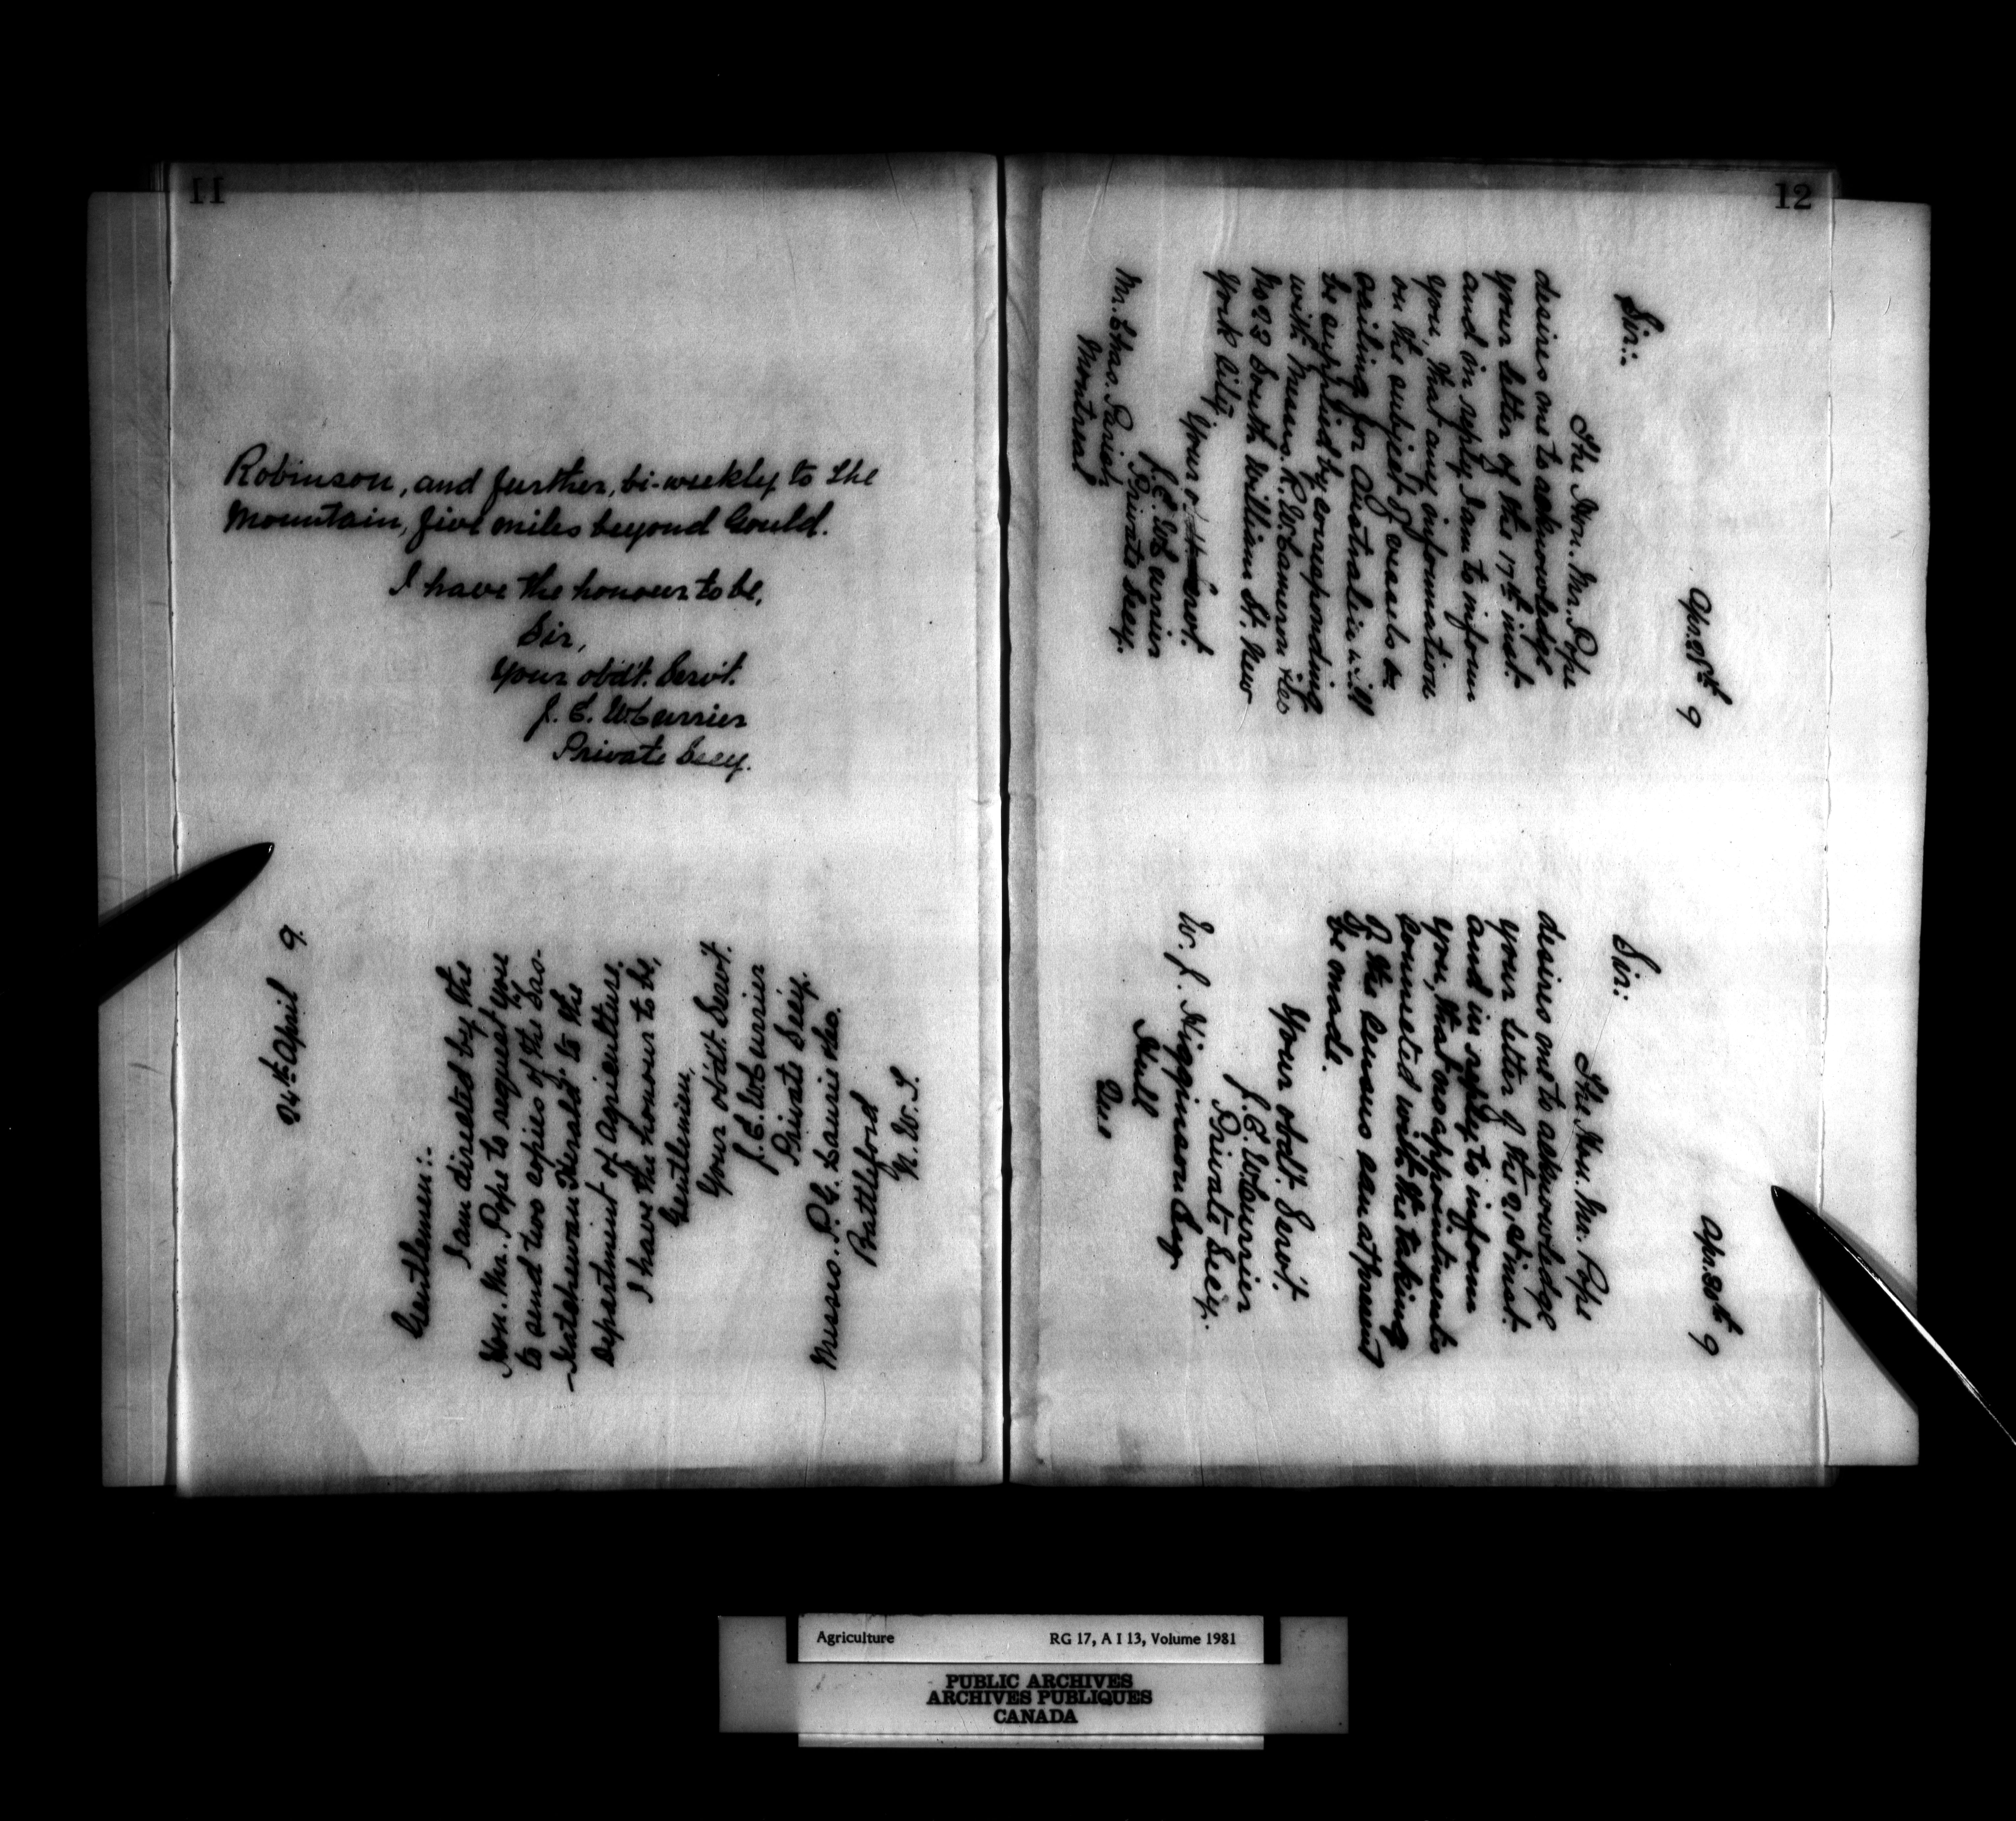 11
Robinson, and further, bi-weekly to the
Mountain, five miles beyond Gould.
I have the honour to be,
Sir,
Your obdt. Servt.
J. E. W. Currier
Private Secy.
24th April 9.
Gentlemen:-
I am directed by the
Hon. Mr. Pope to request you
to send two copies of the Sas-
-katchewan Herald to the
Department of Agriculture.
I have the honour to be,
Gentlemen,
Your obdt. Servt.
J. E. W. Currier
Private Secy.
Messrs. P. G. Laurie & Co.
Battleford
N. W. T.
12
Apr. 28th 9
Sir:-
The Hon. Mr. Pope
desires me to acknowledge
your letter of the 17th inst.
and in reply I am to inform
you, that any information
on the subject of vessels &c
sailing for Australia will
be supplied by corresponding
with Messrs. R. W. Cameron & Co
No 23 South William St. New
York City
Your Servt.
J. E. W. Currier
Private Secy.
Mr. Chas.
Montreal
Apr. 28th 9
Sir:
The Hon. Mr. Pope
desires me to acknowledge
your letter of the 21st inst.
and in reply to inform
you, that no appointments
connected with the taking
of the Census can at present
be made.
Your obdt. Servt.
J. E. W. Currier
Private Secy.
W. J. Higginson Esq.
Hull
Que
Agriculture RG 17, A I 13, Volume 1981
PUBLIC ARCHIVES
ARCHIVES PUBLIQUES
CANADA